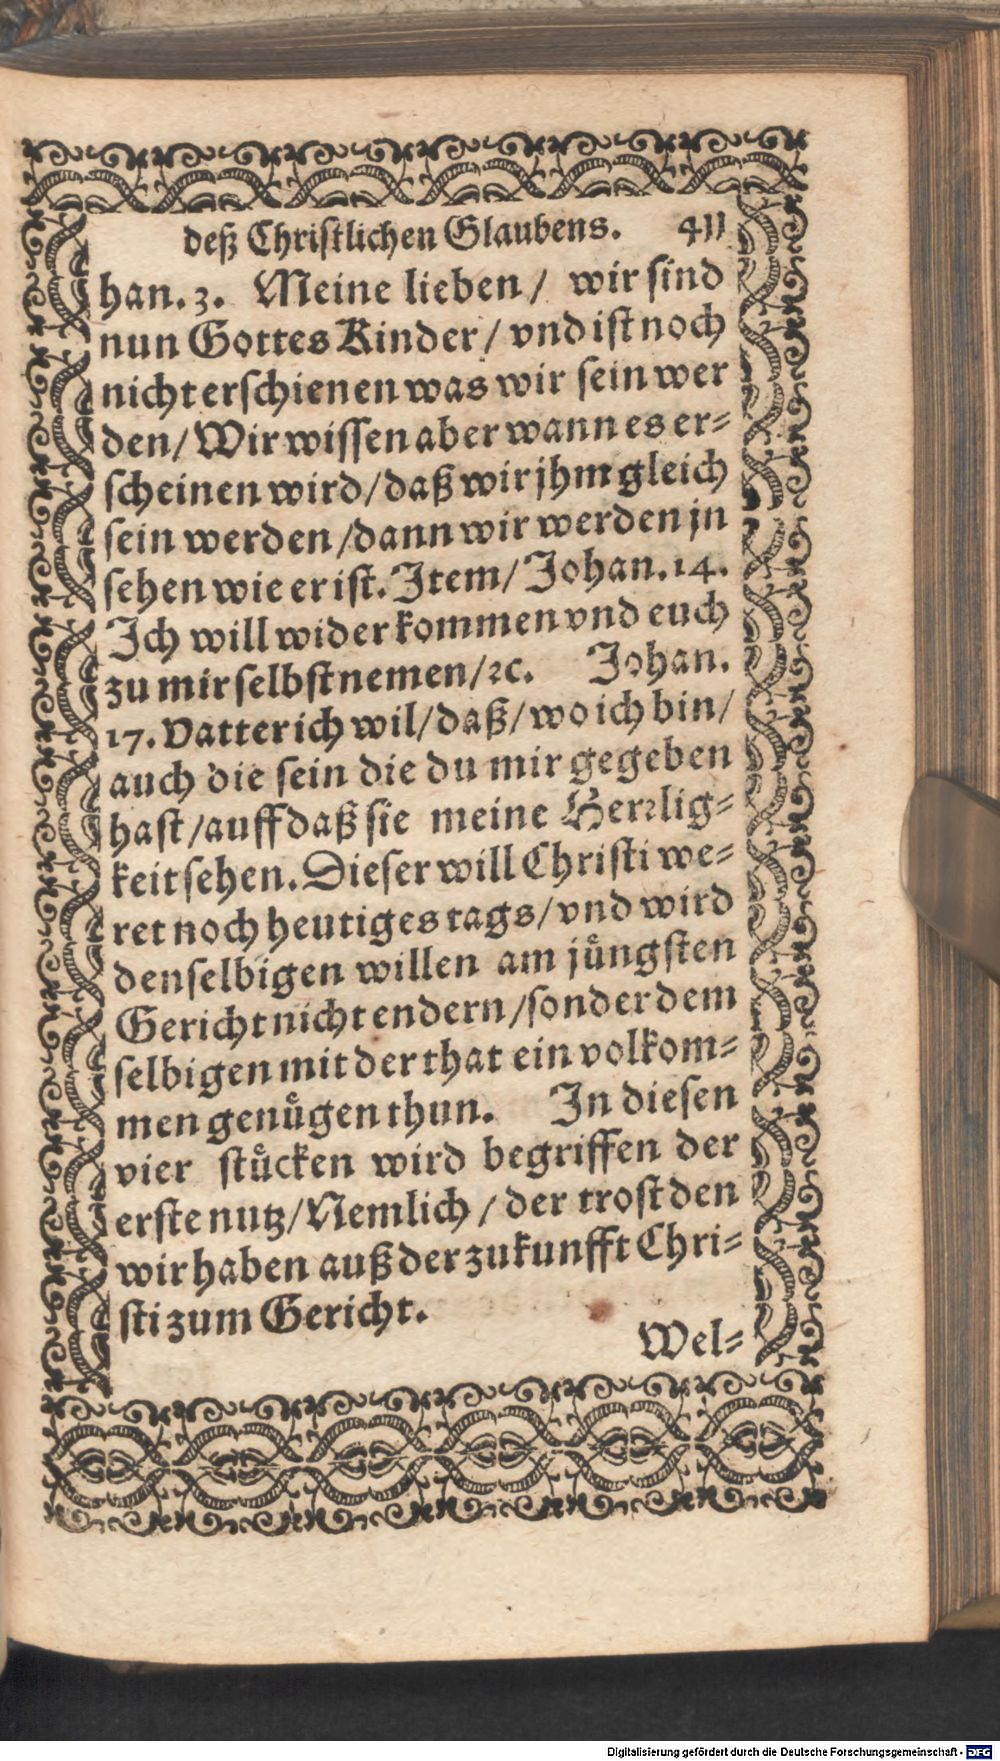 deß Christlichen Glaubens. 411
han. 3. Meine lieben / wir sind
nun Gottes Kinder / vnd ist noch
nicht erschienen was wir sein wer
den / Wir wissen aber wann es er-
scheinen wird / daß wir jhm gleich
sein werden / dann wir werden jn
sehen wie er ist. Item / Johan. 14.
Ich will wider kommen vnd euch
zu mir selbst nemen / ꝛc. Johan.
17. Vatter ich wil / daß / wo ich bin /
auch die sein die du mir gegeben
hast / auff daß sie meine Herꝛlig-
keit sehen. Dieser will Christi we-
ret noch heutiges tags / vnd wird
denselbigen willen am jüngsten
Gericht nicht endern / sonder dem
selbigen mit der that ein volkom-
men genügen thun. In diesen
vier stücken wird begriffen der
erste nutz / Nemlich / der trost den
wir haben auß der zukunfft Chri-
sti zum Gericht.
Wel-
Digitalisierung gefördert durch die Deutsche Forschungsgemeinschaft - DFG